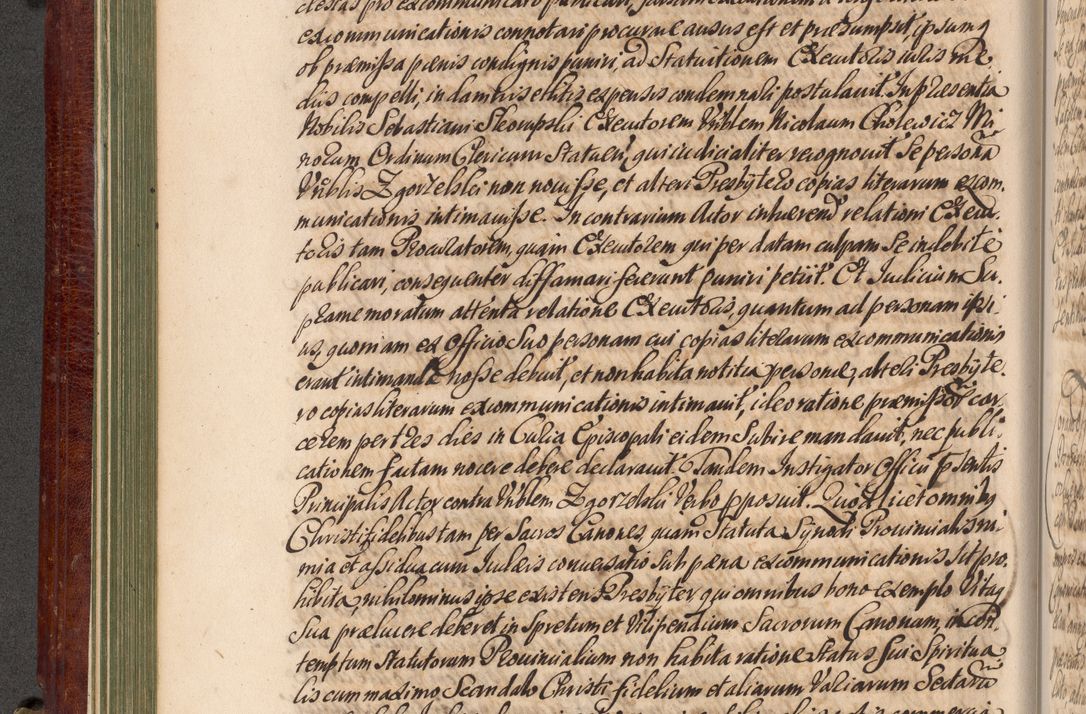 excommunicationis connotari procurare ausus est et præsumpsit, ipsumq
ob præmissa pænis condignis puniri, ad Statuitionem Executoris iuris me
diis compelli, in damnis et litis expensis condemnari postulavit. In præsentia
Nobilis Sebastiani Skorupski Executorem Vrblem Nicolaum Cholewicz Mi
norum Ordinum Clericum Statuit, qui iudicialiter recognovit se personā
Vrblis Zgorzelski non novisse, et alteri Presbytero copias literarum excom
municationis intimavisse. In contrarium Actor inhærend relationi Execu-
toris tam Procuratorem, quam Executorem qui per datam culpam se indebitè
publicari, consequenter diffamari fecerunt puniri petiit. Et Iudicium Su-
prame moratum attenta relatione Executoris, quantum ad personam ipsi-
us, quoniam ex Officio suo personam cui copias literarum excommunicationis
erant intimandæ nosse debuit, et non habita notitia personæ, alteri Presbyte-
ro copias literarum excommunicationis intimavit, ideo ratione præmissor car-
cerem per tres dies in Curia Episcopali eidem Subire mandavit, nec publi-
cationem factam nocere debere declaravit. Tandem Instigator Officii pntis
Principalis Actor contra Vrblem Zgorzelski Verbo pposuit. Quod licet omnibq
Christi fidelibus tam per Sacros Canones, quam Statuta Synodi Provincialis ni-
mia et assidua cum Iudæis conversatio sub pæna excommunicationis sit pro-
hibita, nihilominus ipse existens Presbyter qui omnibus bono exemplo Vitaq
Sua prælucere deberet in Spretum et Vilipendium Sacrorum Canonum, in Con-
temptum Statutorum Provincialium non habita ratione Status sui Spiritua
lis cum maximo Scandalo Christi fidelium et aliarum Variarum Sectarū